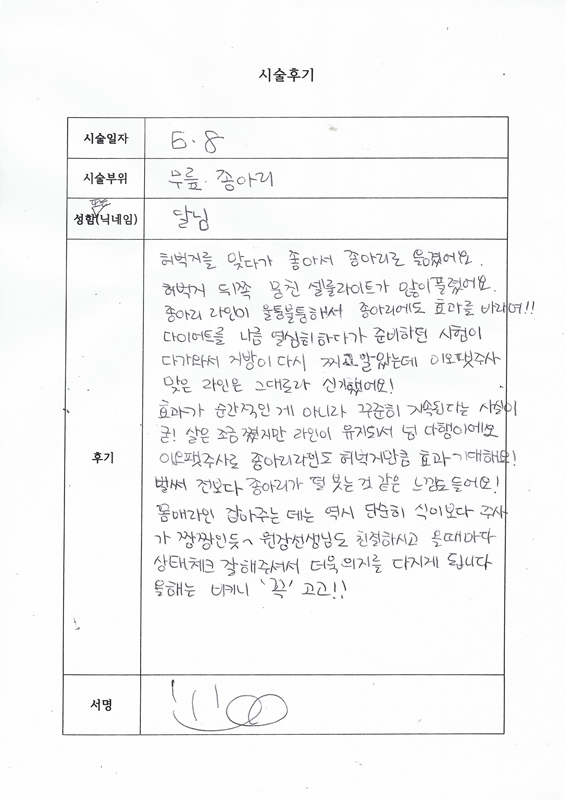 시술후기
시술일자 5.8
시술부위 무릎. 종아리
성함(닉네임) 달님
후기
허벅지를 맞다가 좋아서 종아리로 옮겼어요.
허벅지 뒤쪽 뭉친 셀룰라이트가 많이 풀렸어요.
종아리 라인이 울퉁불퉁해서 종아리에도 효과를 바라며!!
다이어트를 나름 열심히하다가 준비하던 시험이
다가와서 지방이 다시 찌고말았는데 이오팻주사
맞은 라인은 그대로라 신기했어요!
효과가 순간적인 게 아니라 꾸준히 지속된다는 사실이
굳! 살은 조금 쪘지만 라인이 유지되서 넘 다행이에요
이오팻주사로 종아리라인도 허벅지만큼 효과 기대해요!
벌써 전보다 종아리가 덜 붓는 것 같은 느낌도 들어요!
몸매라인 잡아주는 데는 역시 단순히 식이보다 주사
가 짱짱인듯~ 원장선생님도 친절하시고 올때마다
상태체크 잘해주셔서 더욱 의지를 다지게 됩니다
올해는 비키니 '꼭' 고고!!
서명